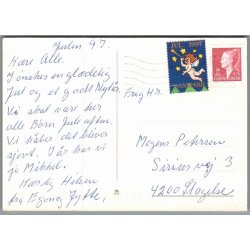 Julen 97.
Kære Alle.
I ønskes en glædelig
Jul og et godt Nytår.
Vi skal være her
alle Børn Jule aften.
Vi håber det bliver
sjovt. I år har vi
jo Mikkel.
Kærlig Hilsen
fra Egon og Jytte.
JUL 1997
DANMARK
Mogens Petersen
Siriusvej 3
4200 Slagelse